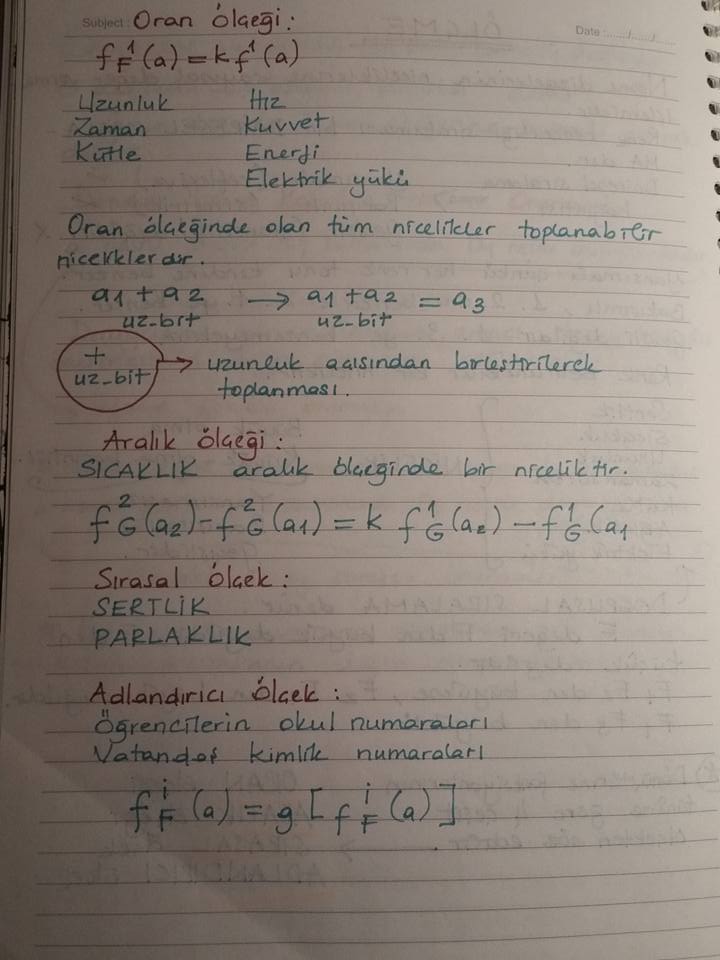 Subject: Oran ölçeği: Date:....../....../......
f¹_F(a) = k f¹(a)
Uzunluk Hız
Zaman Kuvvet
Kütle Enerji
Elektrik yükü
Oran ölçeğinde olan tüm nicelikler toplanabilir
niceliklerdir.
a1 + a2 → a1 + a2 = a3
uz-bit uz-bit
+ → uzunluk açısından birleştirilerek
uz-bit toplanması.
Aralık ölçeği:
SICAKLIK aralık ölçeğinde bir niceliktir.
f²_G(a₂) - f²_G(a₁) = k f¹_G(a₂) - f¹_G(a₁
Sırasal ölçek:
SERTLİK
PARLAKLIK
Adlandırıcı ölçek:
Öğrencilerin okul numaraları
Vatandaş kimlik numaraları
f^i_F(a) = g[f^i_F(a)]